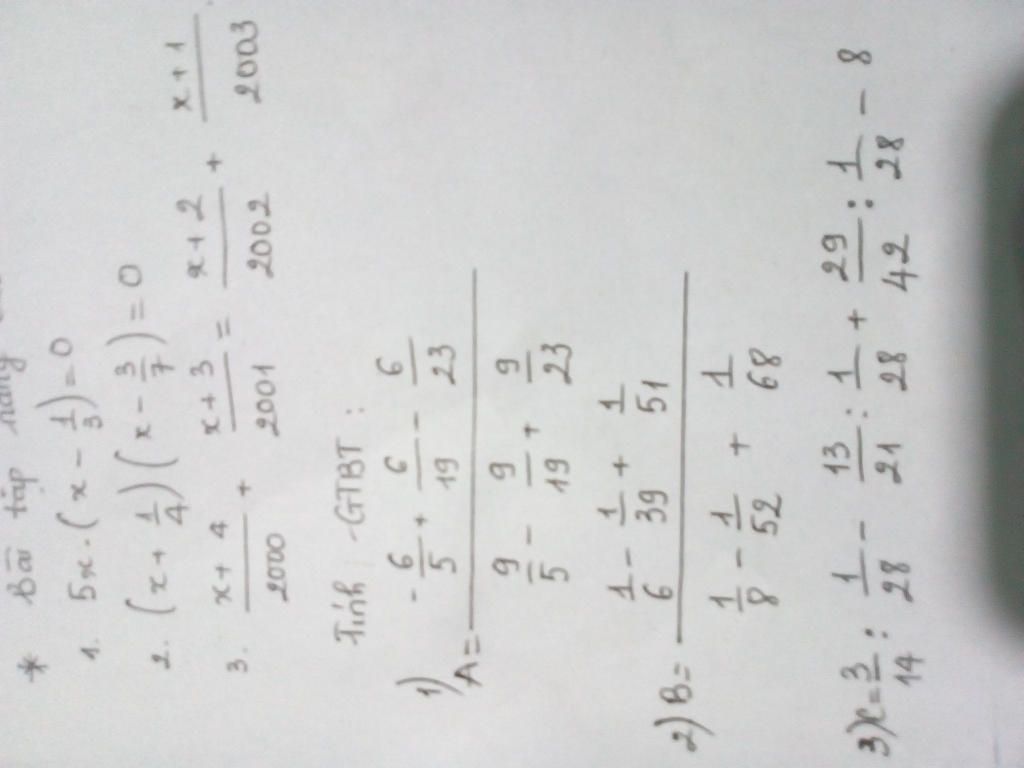 * Bài tập
1. 5x.(x - 1/3) = 0
2. (x + 1/4)(x - 3/7) = 0
3. x+4/2000 + x+3/2001 = x+2/2002 + x+1/2003
Tính GTBT :
1) A = (-6/5 + 6/19 - 6/23) / (9/5 - 9/19 + 9/23)
2) B = (1/6 - 1/39 + 1/51) / (1/8 - 1/52 + 1/68)
3) C = 3/14 : 1/28 - 13/21 : 1/28 + 29/42 : 1/28 - 8